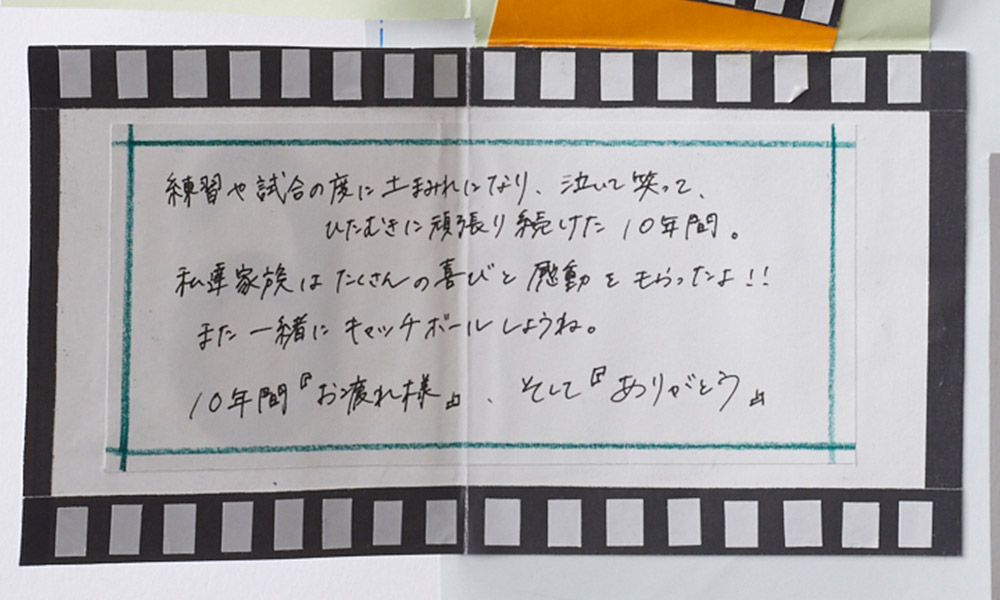 練習や試合の度に土まみれになり、泣いて笑って、
ひたむきに頑張り続けた10年間。
私達家族はたくさんの喜びと感動をもらったよ!!
また一緒にキャッチボールしようね。
10年間『お疲れ様』、そして『ありがとう』